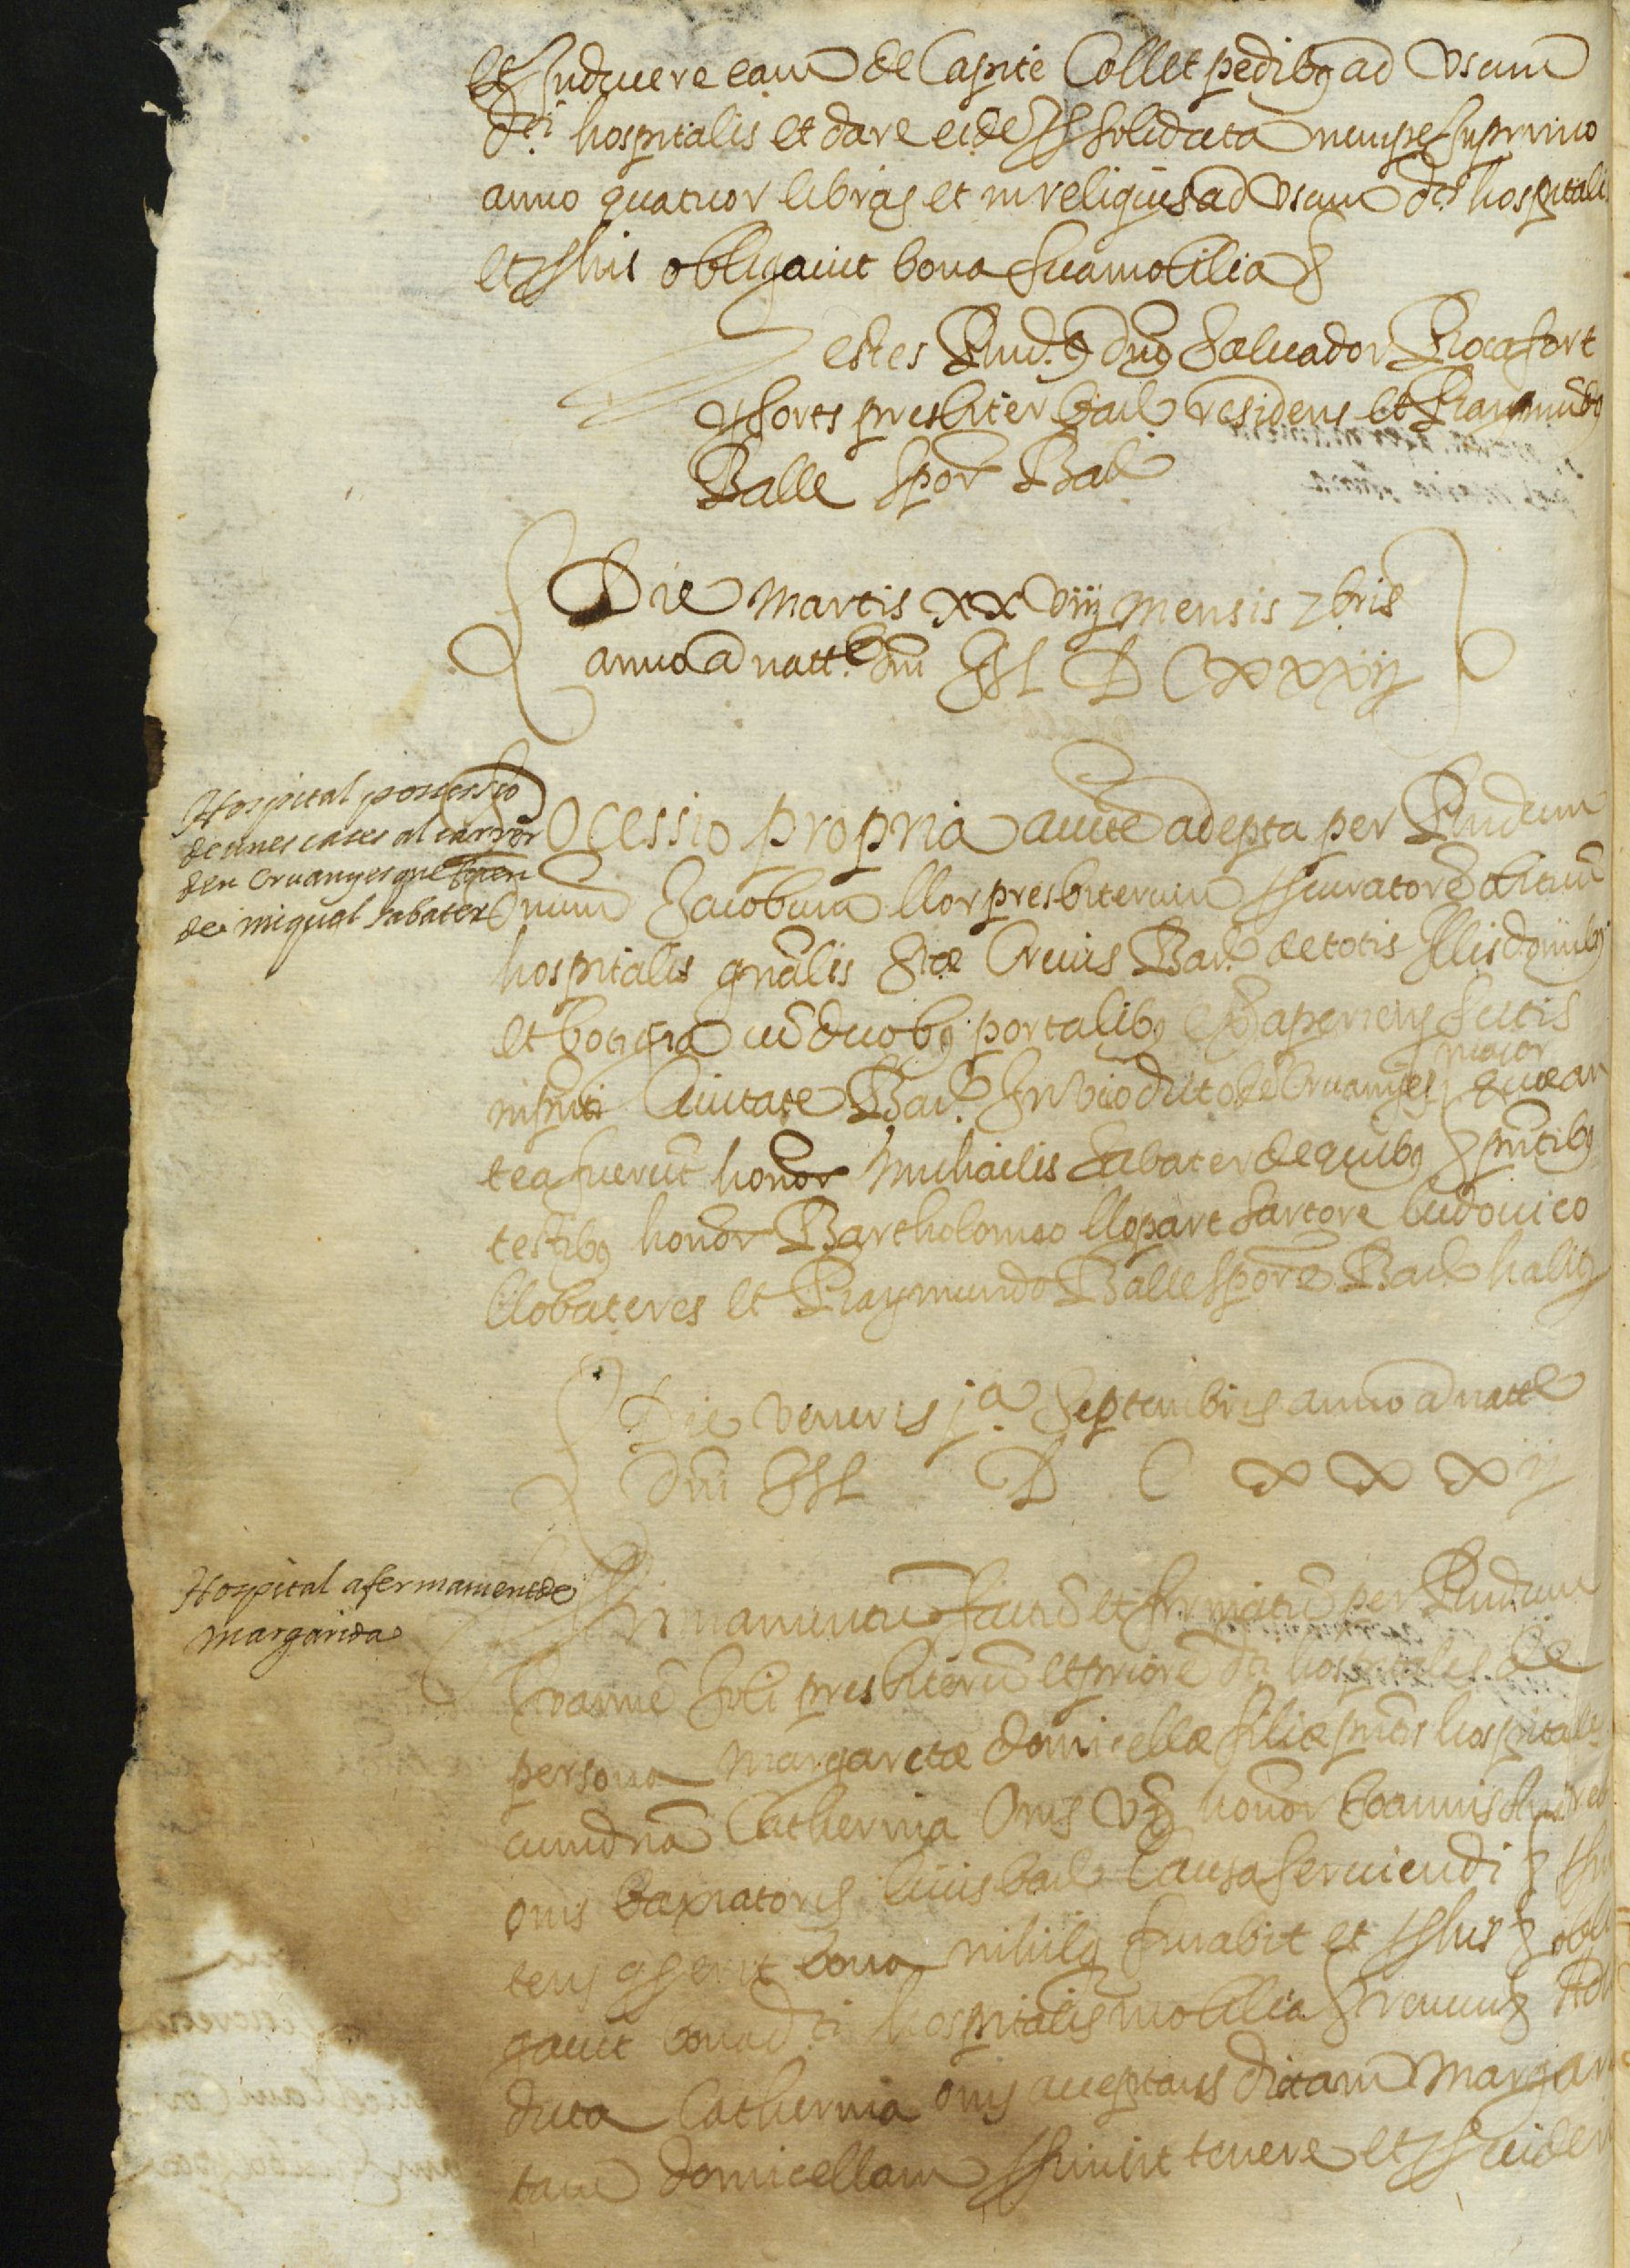 et induere eam de Capite Collet pedibs ad Vsum
dti hospitalis et dare eidē p solidata nempe in primo
anno quatuor libras et in reliquis ad Vsum dti hospitalis
et p his obligauit bona sua mobilia
estes Rnd.s dns Saluador Rocafort
y forts presbiter bar residens et Raymūds
Balle spor Bar
Die Martis xxviiij mensis 7bris
anno a natt.e dni M D C xxxij
Hospital possessio
de unes cases al carrer
den Cruanyes que foren
de miquel sabater
Pocessio propria auctē adepta per Rndum
dnum Jacobum llor presbiterum procuratorē
hospitalis gnālis Stæ Crucis Bar. de totis illis domibs
et botiga cū duobs portalibs aperiens sitis
in pnti Ciuitate Bar. In vico dicto de Cruanyes
maior
quæ an
tea fuerūt honor Michaelis Sabater de quibs pntibs
testibs honor Bartholomeo llopart sartore ludouico
llobateres et Raymundo Balle sporē Bar habits
Die Veneris ja Septembris anno a natte
Dni M D C x x x ij
Hospital afermament de
margarida
firmamentū factū et firmatū per Rndum
Joannē Soli presbiterū et priorē dti hospitalis de
persona Margaretæ domicellæ filiæ pntis hospitalis
cum dna Catherina Onis Vx honor Joannis
onis Baxiatoris Ciuis bar Causa seruiendi
tens gserut bona nihil furabit et p his obli
gauit bona dti hospitalis mobilia
dicta Catherina onis acceptans dictam Margari
tam domicellam tenere et